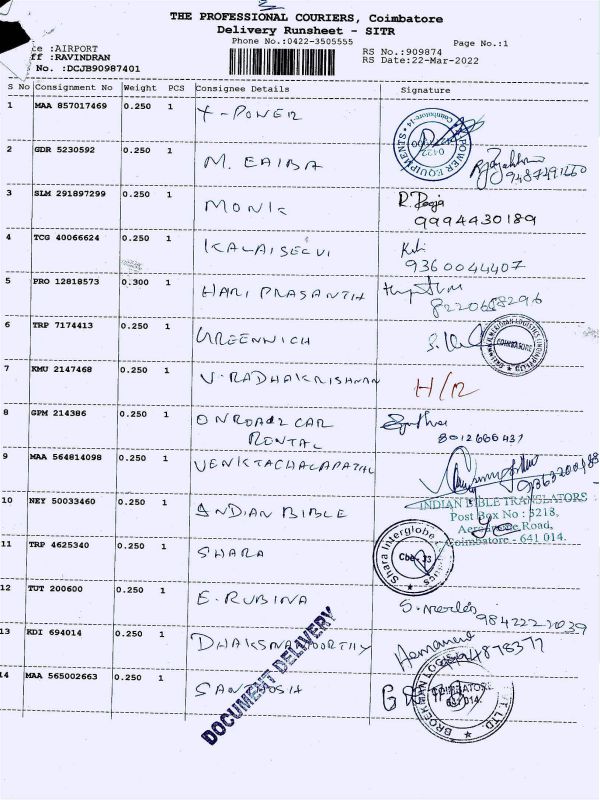 THE PROFESSIONAL COURIERS, Coimbatore
Delivery Runsheet - SITR
Phone No.:0422-3505555
Page No.:1
ce :AIRPORT
RS No.:909874
ff :RAVINDRAN
RS Date:22-Mar-2022
No. :DCJB90987401
S No Consignment No Weight PCS Consignee Details Signature
1 MAA 857017469 0.250 1 X-POWER
POWER EQUIPMENTS Coimbatore-14 0422
2 GDR 5230592 0.250 1 M. EAIBA
9487491660
3 SLM 291897299 0.250 1 MONIC R. Pooja
9994430189
4 TCG 40066624 0.250 1 KALAISELVI
9360044407
5 PRO 12818573 0.300 1 HARI PRASANTH
8220688296
6 TRP 7174413 0.250 1 GREENWICH
COIMBATORE
7 KMU 2147468 0.250 1 V. RADHAKRISHNAN H/R
8 GPM 214386 0.250 1 ONROADZ CAR
RENTAL
8012666437
9 MAA 564814098 0.250 1 VENKTACHALAPATHI
10 NEY 50033460 0.250 1 INDIAN BIBLE
INDIAN BIBLE TRANSLATORS
Post Box No : 3218,
Aerodrome Road,
Coimbatore - 641 014.
11 TRP 4625340 0.250 1 SHARA
Shara Interglobe
Cbe - 33
12 TUT 200600 0.250 1 E. RUBINA
9842221039
13 KDI 694014 0.250 1 DHAKSNAMOORTHY
DOCUMENT DELIVERY
14 MAA 565002663 0.250 1 SANTHOSH
COIMBATORE
641 014.